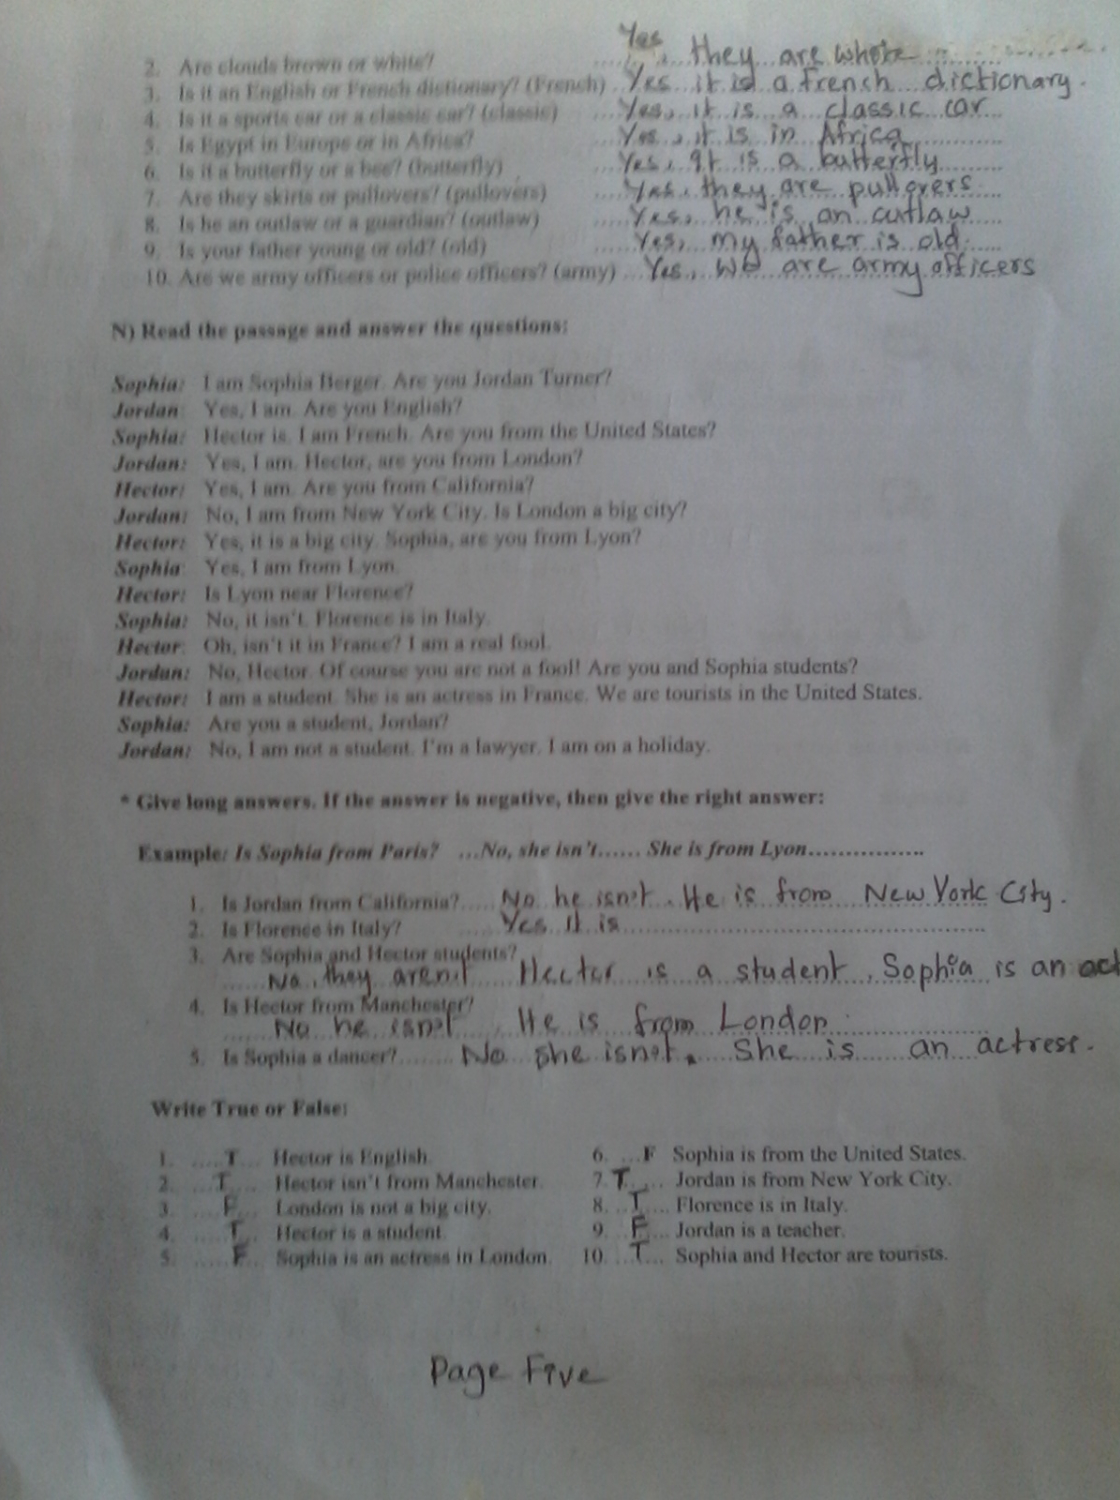 2. Are clouds brown or white? Yes, they are white
3. Is it an English or French dictionary? (French) Yes it is a french dictionary.
4. Is it a sports car or a classic car? (classic) Yes, it is a classic car
5. Is Egypt in Europe or in Africa? Yes, it is in Africa
6. Is it a butterfly or a bee? (butterfly) Yes, It is a butterfly
7. Are they skirts or pullovers? (pullovers) Yes, they are pullovers
8. Is he an outlaw or a guardian? (outlaw) Yes, he is an outlaw
9. Is your father young or old? (old) Yes, my father is old.
10. Are we army officers or police officers? (army) Yes, we are army officers
N) Read the passage and answer the questions:
Sophia: I am Sophia Berger. Are you Jordan Turner?
Jordan: Yes, I am. Are you English?
Sophia: Hector is. I am French. Are you from the United States?
Jordan: Yes, I am. Hector, are you from London?
Hector: Yes, I am. Are you from California?
Jordan: No, I am from New York City. Is London a big city?
Hector: Yes, it is a big city. Sophia, are you from Lyon?
Sophia: Yes, I am from Lyon.
Hector: Is Lyon near Florence?
Sophia: No, it isn't. Florence is in Italy.
Hector: Oh, isn't it in France? I am a real fool.
Jordan: No, Hector. Of course you are not a fool! Are you and Sophia students?
Hector: I am a student. She is an actress in France. We are tourists in the United States.
Sophia: Are you a student, Jordan?
Jordan: No, I am not a student. I'm a lawyer. I am on a holiday.
* Give long answers. If the answer is negative, then give the right answer:
Example: Is Sophia from Paris? ...No, she isn't...... She is from Lyon................
1. Is Jordan from California? No he isn't. He is from New York City.
2. Is Florence in Italy? Yes it is
3. Are Sophia and Hector students?
No, they aren't Hector is a student. Sophia is an act
4. Is Hector from Manchester?
No he isn't. He is from London.
5. Is Sophia a dancer? No she isn't. She is an actress.
Write True or False:
1. T Hector is English. 6. F Sophia is from the United States.
2. T Hector isn't from Manchester. 7. T Jordan is from New York City.
3. F London is not a big city. 8. T Florence is in Italy.
4. T Hector is a student. 9. F Jordan is a teacher.
5. F Sophia is an actress in London. 10. T Sophia and Hector are tourists.
Page Five